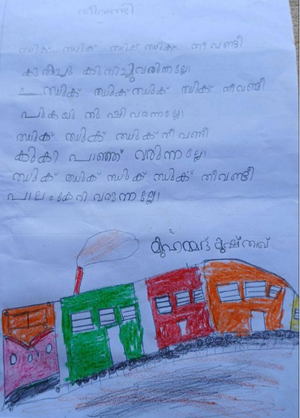 തീവണ്ടി
ഝിക് ഝിക് ഝിക് ഝിക് തീവണ്ടി
കുതിച്ചു കിതച്ചുവരുന്നല്ലോ
ഝിക് ഝിക് ഝിക് ഝിക് തീവണ്ടി
പുകയൂതി വരുന്നല്ലോ
ഝിക് ഝിക് ഝിക് തീവണ്ടി
കൂകി പാഞ്ഞ് വരുന്നല്ലോ
ഝിക് ഝിക് ഝിക് ഝിക് തീവണ്ടി
പാലം കേറി വരുന്നല്ലോ
മുഹമ്മദ്